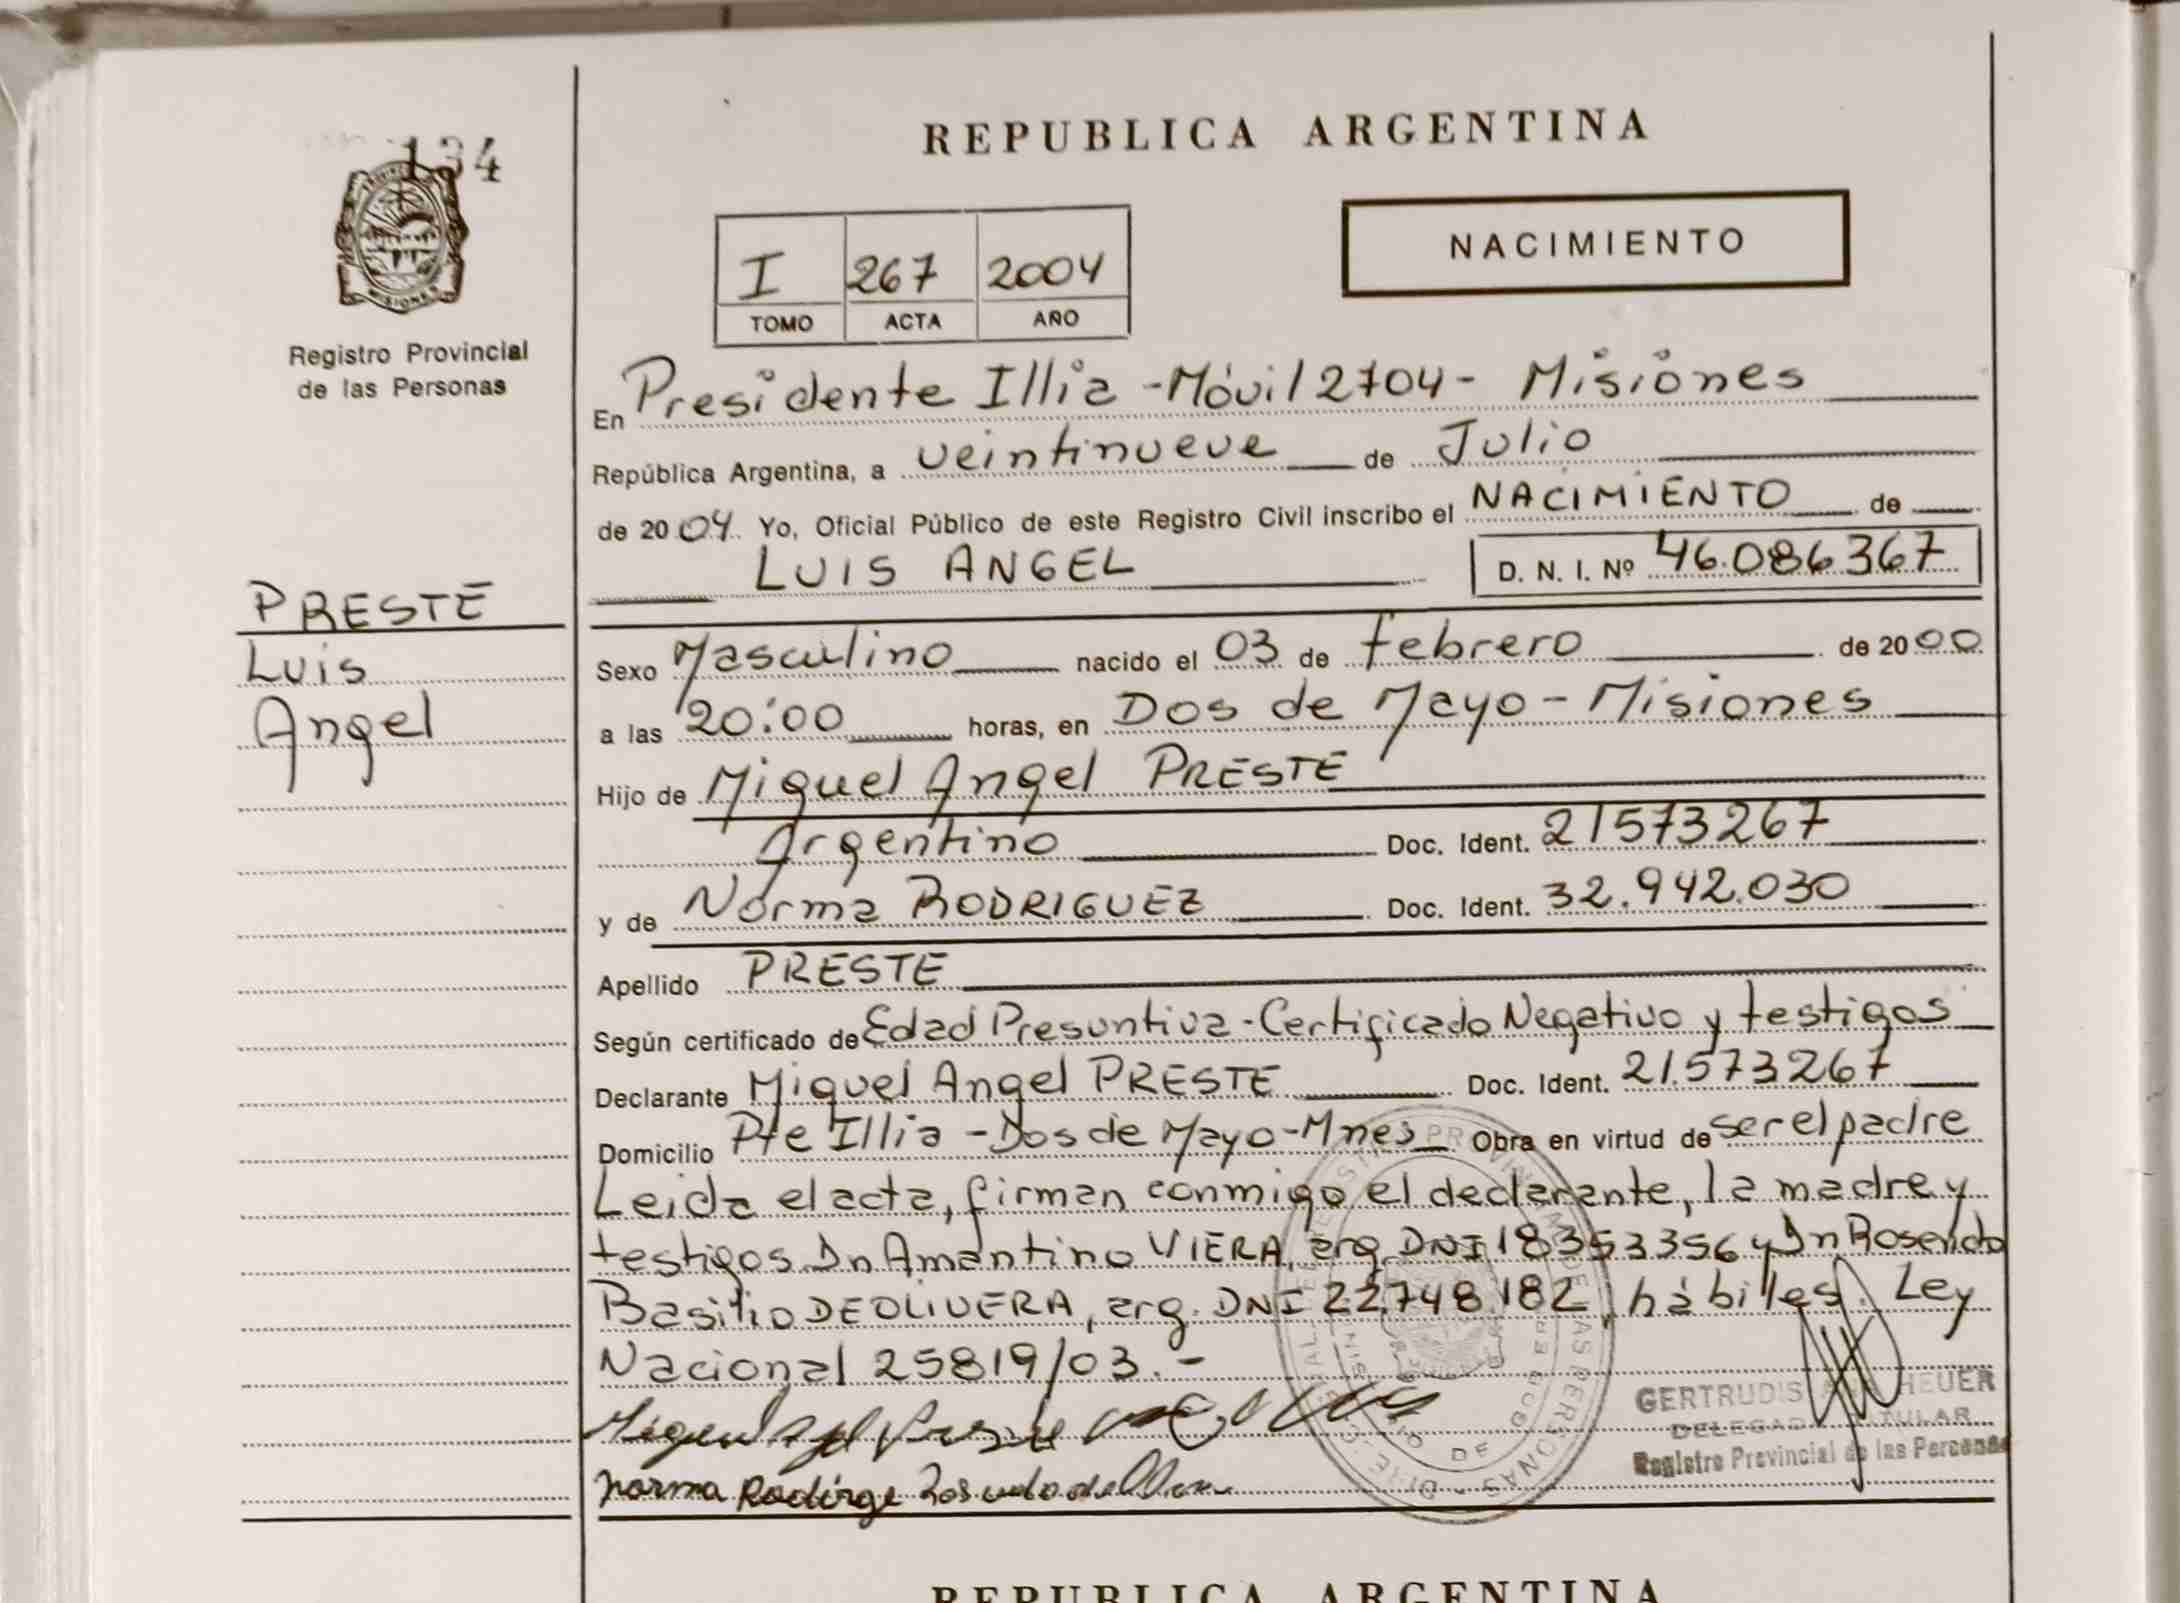 134
MISIONES
Registro Provincial
de las Personas
PRESTE
Luis
Angel
REPUBLICA ARGENTINA
I 267 2004
TOMO ACTA AÑO
NACIMIENTO
En Presidente Illia - Móvil 2704 - Misiones
República Argentina, a veintinueve de Julio
de 2004. Yo, Oficial Público de este Registro Civil inscribo el NACIMIENTO de
LUIS ANGEL D. N. I. Nº 46.086.367
Sexo Masculino nacido el 03 de febrero de 2000
a las 20:00 horas, en Dos de Mayo - Misiones
Hijo de Miguel Angel PRESTE
Argentino Doc. Ident. 21573267
y de Norma RODRIGUEZ Doc. Ident. 32.942.030
Apellido PRESTE
Según certificado de Edad Presuntiva - Certificado Negativo y testigos
Declarante Miguel Angel PRESTE Doc. Ident. 21.573267
Domicilio Pte Illia - Dos de Mayo - Mnes Obra en virtud de ser el padre
Leida el acta, firman conmigo el declarante, la madre y
testigos Dn Amantino VIERA, arg. DNI 18353356 y Dn Rosendo
Basilio DEOLIVERA, arg. DNI 22.748.182, hábiles. Ley
Nacional 25819/03.-
GERTRUDIS HEUER
DELEGADA TITULAR
Registro Provincial de las Personas
Norma Rodirge
REPUBLICA ARGENTINA